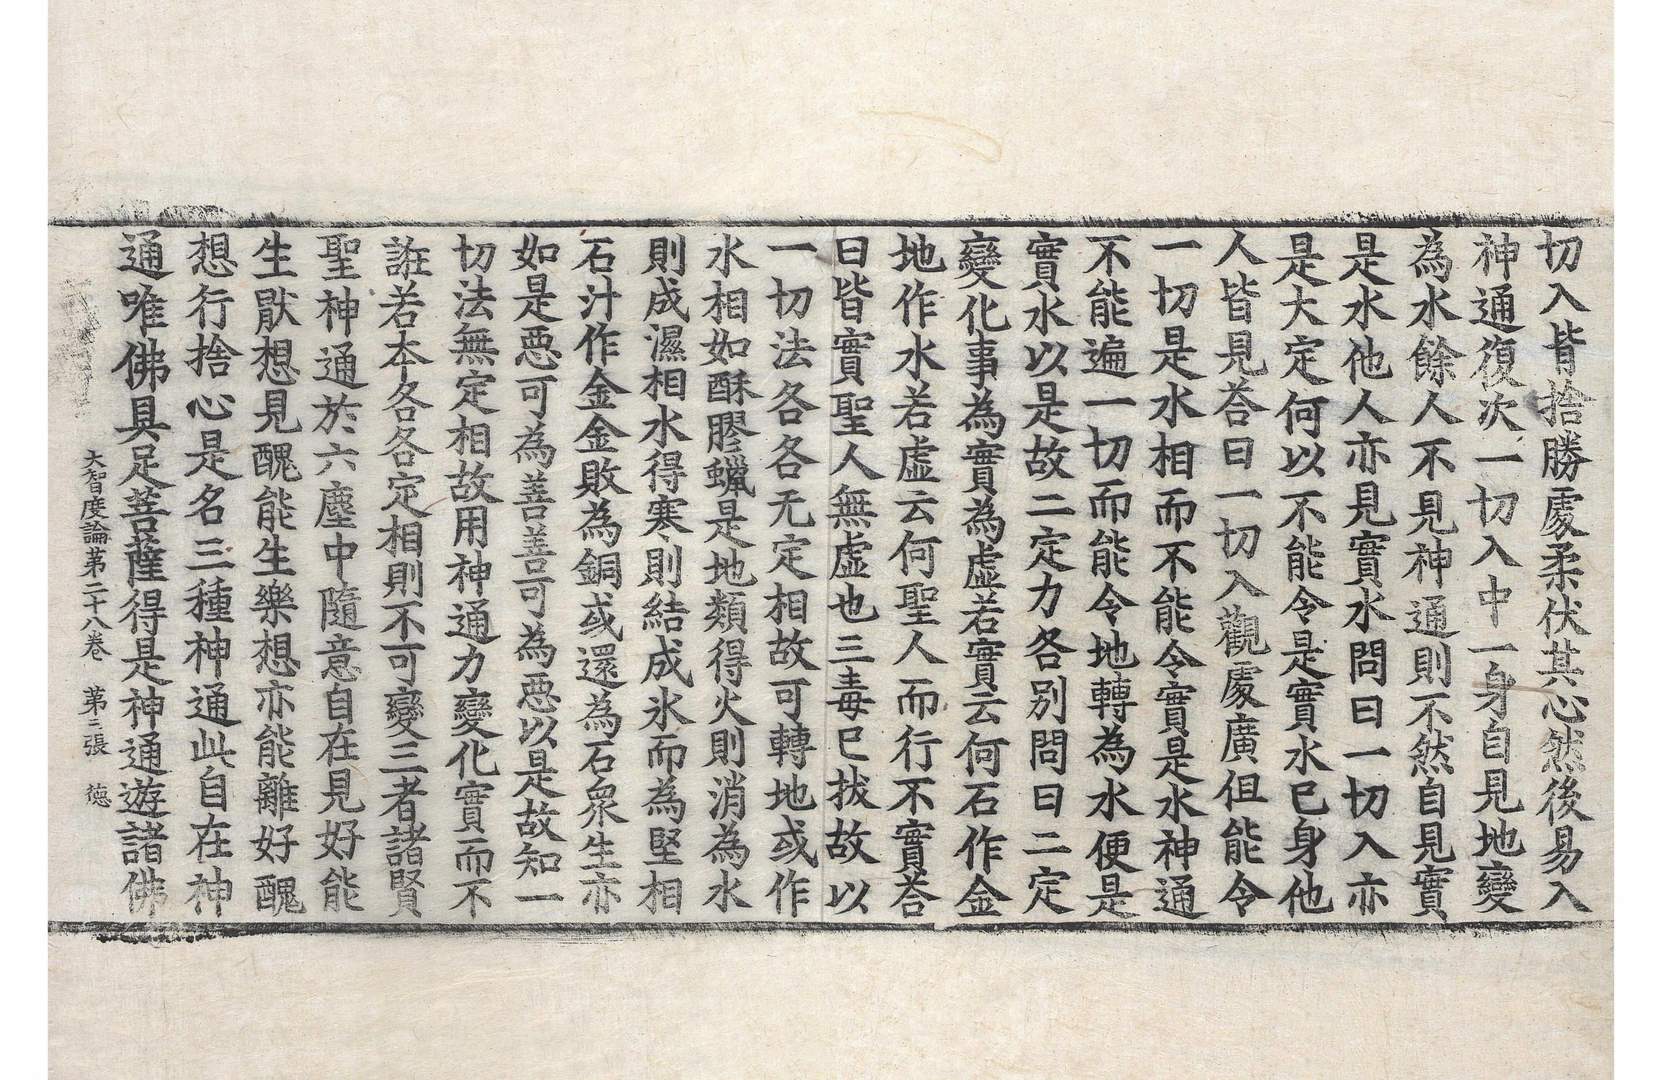 切入皆捨勝處柔伏其心然後易入
神通復次一切入中一身自見地變
為水餘人不見神通則不然自見實
是水他人亦見實水問曰一切入亦
是大定何以不能令是實水已身他
人皆見荅曰一切入觀處廣但能令
一切是水相而不能令實是水神通
不能遍一切而能令地轉為水便是
實水以是故二定力各別問曰二定
變化事為實為虛若實云何石作金
地作水若虛云何聖人而行不實荅
曰皆實聖人無虛也三毒已拔故以
一切法各各无定相故可轉地或作
水相如酥膠蠟是地類得火則消為水
則成濕相水得寒則結成氷而為堅相
石汁作金金敗為銅或還為石衆生亦
如是惡可為善善可為惡以是故知一
切法無定相故用神通力變化實而不
誑若本各各定相則不可變三者諸賢
聖神通於六塵中隨意自在見好能
生猒想見醜能生樂想亦能離好醜
想行捨心是名三種神通此自在神
通唯佛具足菩薩得是神通遊諸佛
大智度論第二十八卷　第三張　德